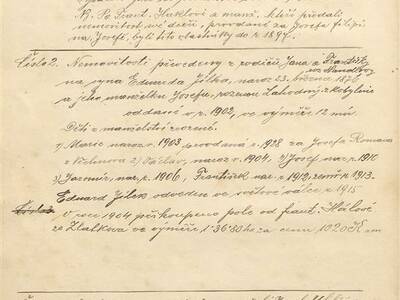 N. Po Frant. Huklovi a manž., kteří předali
nemovitost své dceři, provdané za Josefa Filipi
na, Josefě, byli tito vlastníky do r. 1897.
Číslo 2. Nemovitosti převedeny z rodičů Jana a Františky
roz. Mandlový
na syna Eduarda Jílka, naroz. 23. března 1876
a jeho manželku Josefu, rozenou Lahodný z Kobylnic
oddané v r. 1902, ve výměře 12 m.
Děti z manželství zrozené.
1) Marie naroz. v r. 1903 provdaná r. 1928 za Josefa Romana
2) Václav, naroz. v r. 1904, 3) Josef nar. r. 1910
Jaromír, nar. r. 1906, František nar. r. 1912, zemř. r. 1913.
Eduard Jílek odveden ve světové válce r. 1915
V roce 1904 přikoupeno pole od Frant. Hálové
ze Zlatkova ve výměře 1·36·80 ha za cenu 1020 K